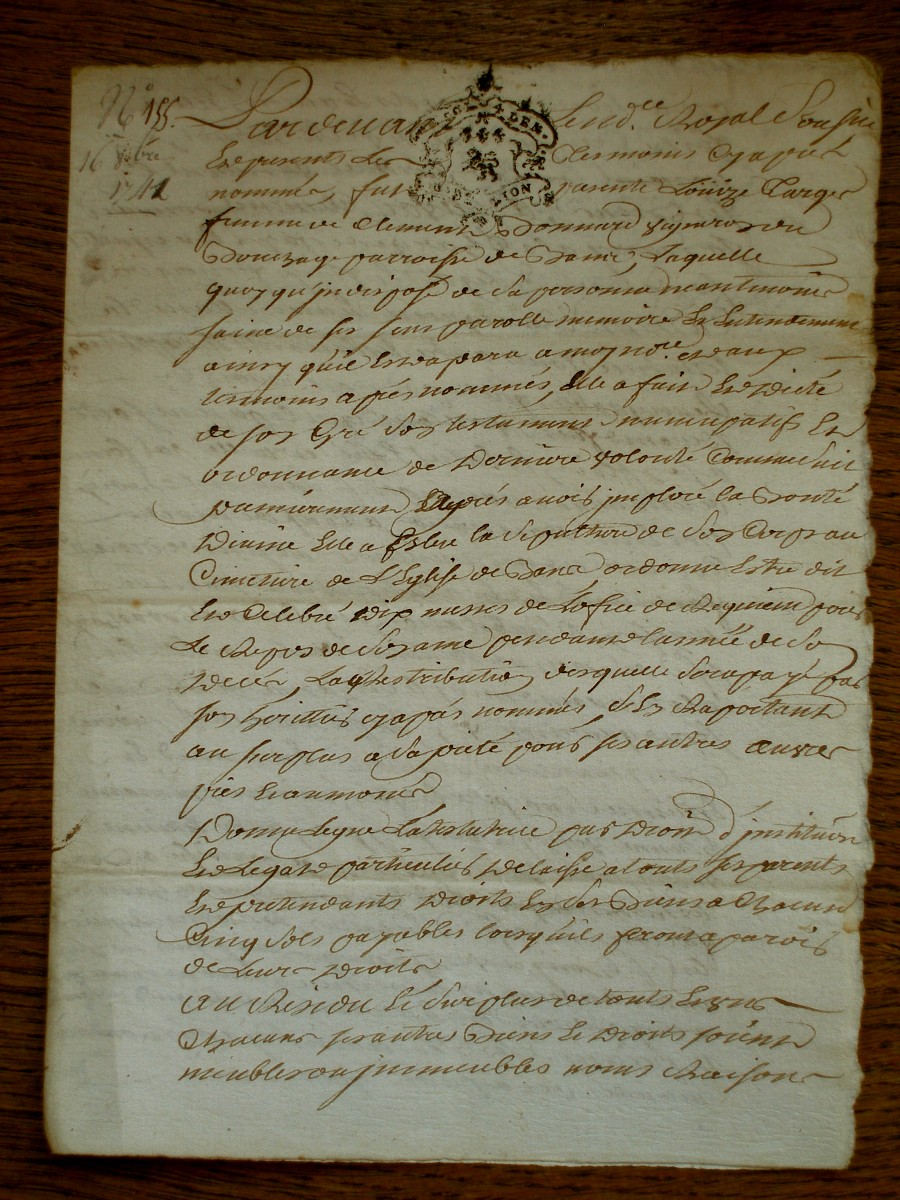 N° 155.
16 xbre
1741
GEN DE LION
Pardevant le no.re Royal Soussigné
et presents les tesmoins cy apres
nommés, fut presente Louize Large
femme de Clement Bonnard vigneron du
parroisse de laquelle
quoy qu'indisposé de sa personne neantmoins
saine de ses sens parolle memoire et entendement
ainsy qu'il est aparu a moy no.re et aux
tesmoins apres nommés, elle a fait et dicté
de son gré son testament nuncupatif et
ordonnance de derniere volonté comme suit
premierement aprés avoir imploré la bonté
divine elle a eslu la sepulture de son corps au
Cimetiere de l'Eglise de ordonne estre dit
et celebré dix messes de l'ofice de Requiem pour
le Repos de son ame pendant l'année de son
deces, la Restribution desquelle sera payé par
son heritier cy apres nommés, se Raportant
au surplus a sa pieté pour ses autres œuvres
pies et aumones
Donne legue la testatrice par droit d'institution
et legat particulier delaisse a touts ses parents
et pretendants droits en ses biens a chacun
Cinq sols payables lorsqu'ils feront aparoir
de leurs droits
au Residu et surplus de touts et uns
chacuns ses autres biens et droits soient
meubles ou immeubles noms Raisons